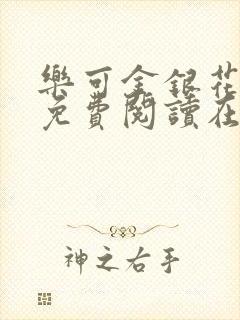 樂可金銀花
免費閱讀在
神之右手